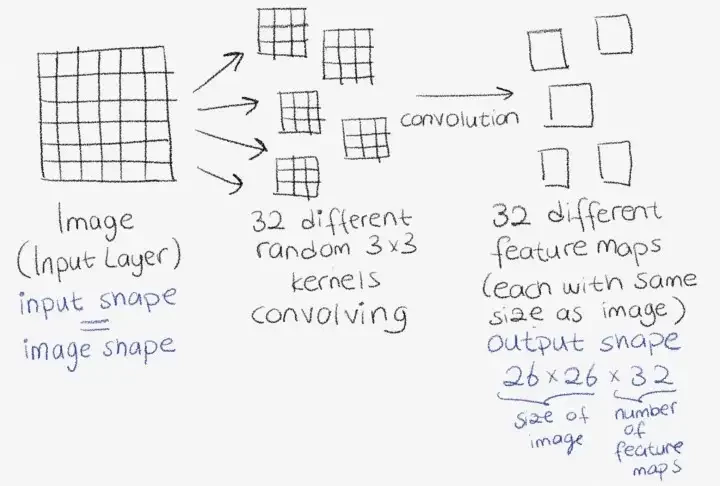 Image
(Input Layer)
input shape
=
image shape
32 different
random 3×3
kernels
convolving
convolution
32 different
feature maps
(each with same
size as image)
output shape
26×26×32
size of
image
number
of
feature
maps